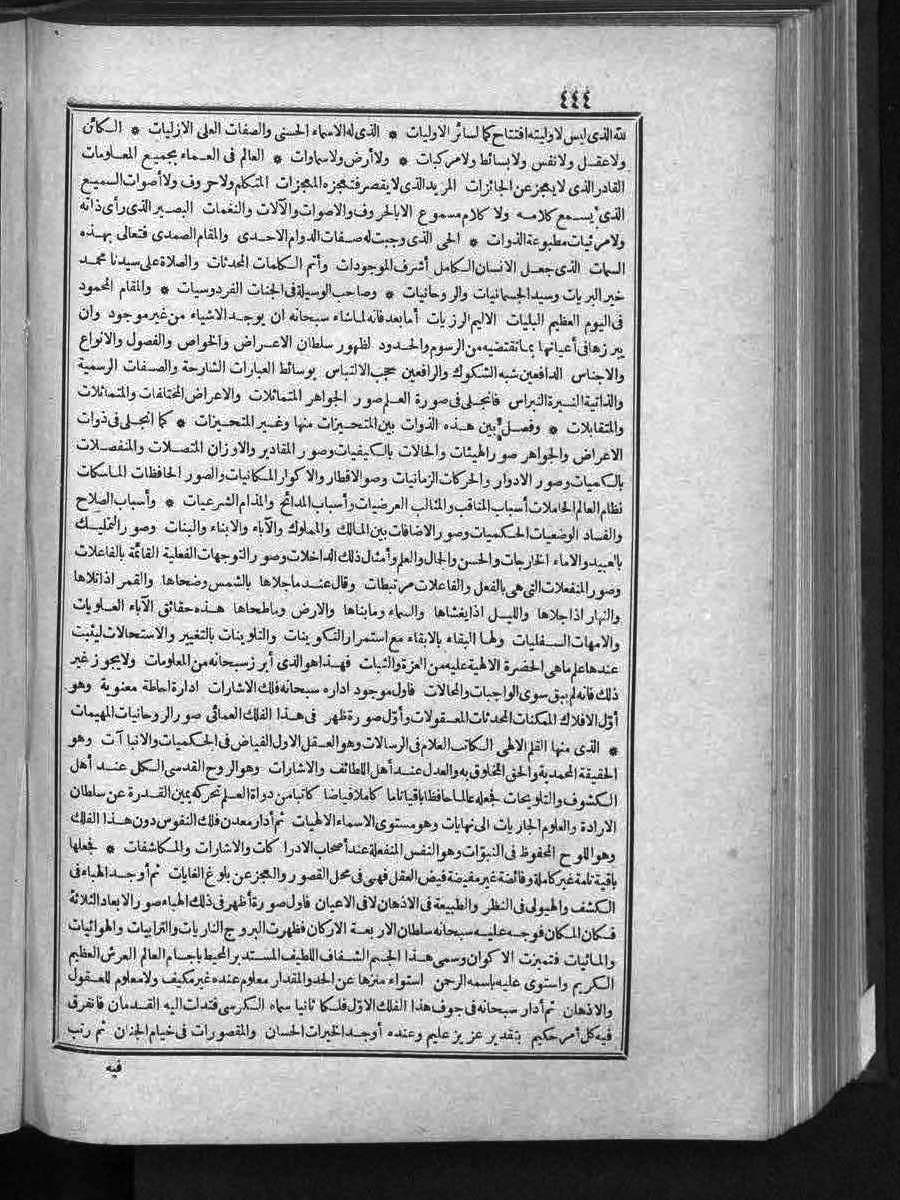 ٤٤٤
لله الذى ليس لاوليته افتتاح كما لسائر الاوليات * الذى له الاسماء الحسنى والصفات العلى الازليات * الكائن
ولا عقل ولا نفس ولا بسائط ولا مركبات * ولا أرض ولا سماوات * العالم فى العماء بجميع المعلومات
القادر الذى لا يعجز عن الجائزات المريد الذى لا يقصر فتعجزه المعجزات المتكلم ولا حروف ولا أصوات السميع
الذى يسمع كلامه ولا كلام مسموع الا بالحروف والاصوات والآلات والنغمات البصير الذى رأى ذاته
ولا مرئيات مطبوعة الذوات * الحى الذى وجبت له صفات الدوام الاحدى والمقام الصمدى فتعالى بهذه
السمات الذى جعل الانسان الكامل أشرف الموجودات وأتم الكلمات المحدثات والصلاة على سيدنا محمد
خير البريات وسيد الجسمانيات والروحانيات * وصاحب الوسيلة فى الجنات الفردوسيات * والمقام المحمود
فى اليوم العظيم البليات الاليم الرزيات أما بعد فانه لما شاء سبحانه ان يوجد الاشياء من غير موجود وان
يبرزها فى أعيانها بما تقتضيه من الرسوم والحدود لظهور سلطان الاعراض والخواص والفصول والانواع
والاجناس الدافعين شبه الشكوك والرافعين حجب الالتباس بوسائط العبارات الشارحة والصفات الرسمية
والذاتية النيرة النبراس فانجلى فى صورة العلم صور الجواهر المتماثلات والاعراض المختلفات والمتماثلات
والمتقابلات * وفصل بين هذه الذوات بين المتحيزات منها وغير المتحيزات * كما انجلى فى ذوات
الاعراض والجواهر صور الهيئات والحالات بالكيفيات وصور المقادير والاوزان المتصلات والمنفصلات
بالكميات وصور الادوار والحركات الزمانيات وصور الاقطار والاكوار المكانيات والصور الحافظات الماسكات
نظام العالم الحاملات أسباب المناقب والمثالب العرضيات وأسباب المدائح والمذام الشرعيات * وأسباب الصلاح
والفساد الوضعيات الحكميات وصور الاضافات بين المالك والمملوك والآباء والابناء والبنات وصور التمليك
بالعبيد والاماء الخارجات والحسن والجمال والعلم وأمثال ذلك الداخلات وصور التوجهات الفعلية القائمة بالفاعلات
وصور المنفعلات التى هى بالفعل والفاعلات مرتبطات وقال عند ما جلاها بالشمس وضحاها والقمر اذا تلاها
والنهار اذا جلاها والليل اذا يغشاها والسماء وما بناها والارض وما طحاها هذه حقائق الآباء العلويات
والامهات السفليات ولها البقاء بالابقاء مع استمرار التكوينات والتلوينات بالتغيير والاستحالات ليثبت
عندها علم ما هى الحضرة الالهية عليه من العزة والثبات فهذا هو الذى أبرز سبحانه من المعلومات ولا يجوز غير
ذلك فانه لم يبق سوى الواجبات والمحالات فاول موجود اداره سبحانه فلك الاشارات ادارة احاطة معنوية وهو
أول الافلاك الممكنات المحدثات المعقولات وأول صورة ظهر فى هذا الفلك العمائى صور الروحانيات المهيمات
* الذى منها القلم الالهى الكاتب العلام فى الرسالات وهو العقل الاول الفياض فى الحكميات والانباآت وهو
الحقيقة المحمدية والحق المخلوق به والعدل عند أهل اللطائف والاشارات وهو الروح القدسى الكل عند أهل
الكشوف والتلويحات فجعله عالما حافظا باقيا تاما كاملا فياضا كاتبا من دواة العلم تحركه يمين القدرة عن سلطان
الارادة والعلوم الجاريات الى نهايات وهو مستوى الاسماء الالهيات ثم أدار معدن فلك النفوس دون هذا الفلك
وهو اللوح المحفوظ فى النبوات وهو النفس المنفعلة عند أصحاب الادراكات والاشارات والمكاشفات * فجعلها
باقية تامة غير كاملة وفائضة غير مفيضة فيض العقل فهى فى محل القصور والعجز عن بلوغ الغايات ثم أوجد الهباء فى
الكشف والهيولى فى النظر والطبيعة فى الاذهان لا فى الاعيان فاول صورة أظهر فى ذلك الهباء صور الابعاد الثلاثة
فكان المكان فوجه عليه سبحانه سلطان الاربعة الاركان فظهرت البروج الناريات والترابيات والهوائيات
والمائيات فتميزت الاكوان وسمى هذا الجسم الشفاف اللطيف المستدير المحيط باجسام العالم العرش العظيم
الكريم واستوى عليه باسمه الرحمن استواء منزها عن الحد والمقدار معلوم عنده غير مكيف ولا معلوم للعقول
والاذهان ثم أدار سبحانه فى جوف هذا الفلك الاول فلكا ثانيا سماه الكرسى فتدلت اليه القدمان فانفرق
فيه كل أمر حكيم بتقدير عزيز عليم وعنده أوجد الخيرات الحسان والمقصورات فى خيام الجنان ثم رتب
فيه